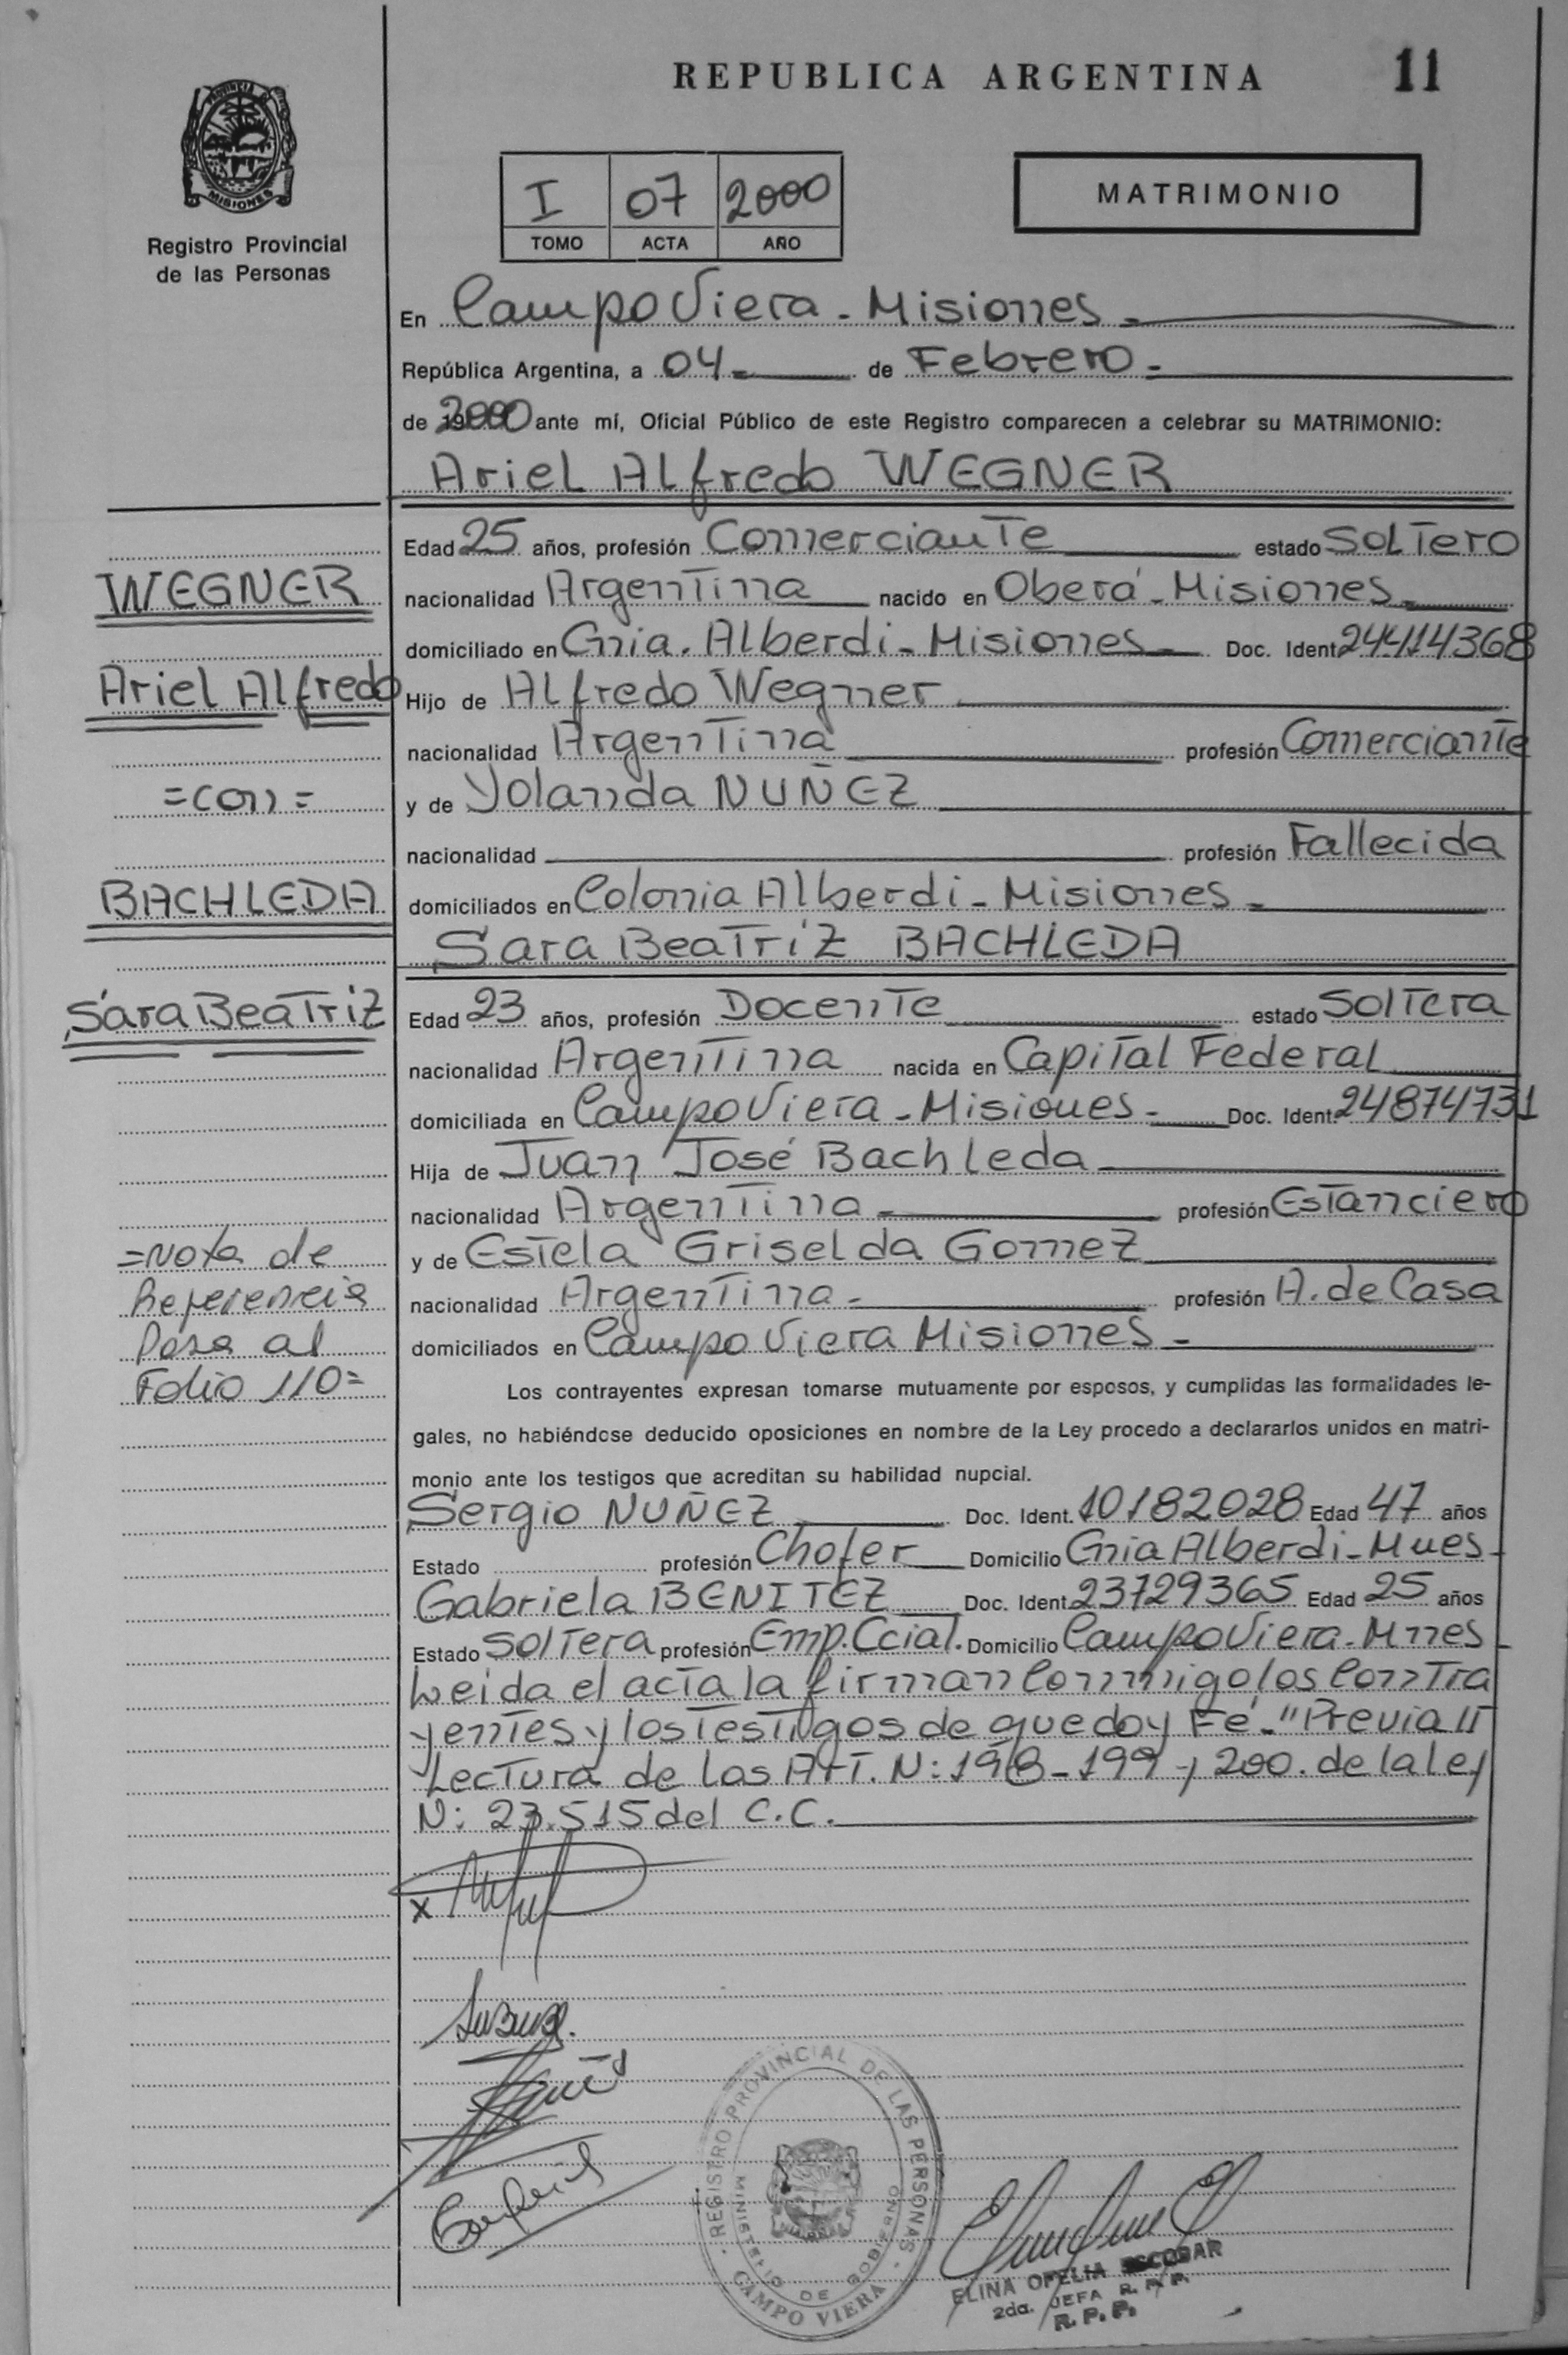 REPUBLICA ARGENTINA 11
PROVINCIA DE
MISIONES
Registro Provincial
de las Personas
I 07 2000
TOMO ACTA AÑO
MATRIMONIO
En Campo Viera - Misiones -
República Argentina, a 04 - de Febrero -
de 2000 ante mí, Oficial Público de este Registro comparecen a celebrar su MATRIMONIO:
Ariel Alfredo WEGNER
Edad 25 años, profesión Comerciante estado Soltero
WEGNER
nacionalidad Argentina nacido en Oberá - Misiones -
domiciliado en Cnia. Alberdi - Misiones - Doc. Ident. 24414368
Ariel Alfredo
Hijo de Alfredo Wegner
nacionalidad Argentina profesión Comerciante
=con=
y de Yolanda NUÑEZ
nacionalidad profesión Fallecida
BACHLEDA
domiciliados en Colonia Alberdi - Misiones -
Sara Beatriz BACHLEDA
Sara Beatriz
Edad 23 años, profesión Docente estado Soltera
nacionalidad Argentina nacida en Capital Federal
domiciliada en Campo Viera - Misiones - Doc. Ident. 24874731
Hija de Juan José Bachleda
nacionalidad Argentina - profesión Estanciero
y de Estela Griselda Gomez
nacionalidad Argentina - profesión A. de Casa
domiciliados en Campo Viera Misiones -
=Nota de
Referencia
Pasa al
Folio 110=
Los contrayentes expresan tomarse mutuamente por esposos, y cumplidas las formalidades le-
gales, no habiéndose deducido oposiciones en nombre de la Ley procedo a declararlos unidos en matri-
monio ante los testigos que acreditan su habilidad nupcial.
Sergio NUÑEZ Doc. Ident. 10182028 Edad 47 años
Estado profesión Chofer Domicilio Cnia Alberdi - Mnes -
Gabriela BENITEZ Doc. Ident. 23729365 Edad 25 años
Estado Soltera profesión Emp. Ccial. Domicilio Campo Viera - Mnes -
Leida el acta la firman Conmigo los Contra
yentes y los Testigos de que doy Fé - "Previa"
Lectura de los Art. N: 198 - 199 y 200. de la ley
N: 23.515 del C.C.
x
REGISTRO PROVINCIAL DE LAS PERSONAS
MINISTERIO DE GOBIERNO
CAMPO VIERA
ELINA OFELIA ESCOBAR
2da. JEFA R. P. P.
R. P. P.